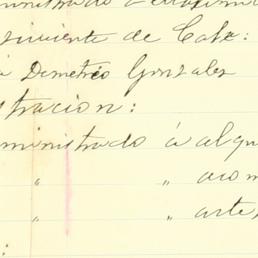 ministrado
imiente de Cafe:
á Demetrio Gonzales
stracion:
ministrado á alqu
" "
" " arte
: